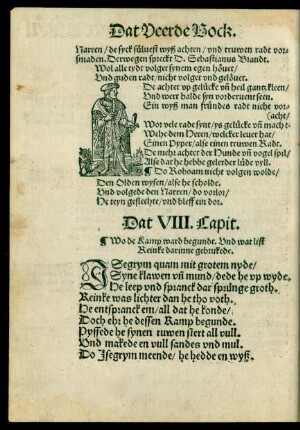 Dat Veerde Bock.
Narren / de syck süluest wyß achten / vnd truwen radt vor-
smaden. Derwegen spreckt D. Sebastianus Brandt.
Wol alle tydt volget synem egen höuet /
Vnd guden radt / nicht volget vnd gelöuet.
De achtet vp gelücke vñ heil gantz kleen /
Vnd wert balde syn vorderuent seen.
Ein wyß man fründes radt nicht vor-
(acht /
Wor vele radt synt / ys gelücke vñ macht
Wehe dem Heren / welcker leuer hat /
Einen Pypet / alse einen truwen Radt.
De mehr achtet der Hunde vñ vögel spil /
Alse dat he hebbe gelerder lüde vyll.
¶ Do Roboam nicht volgen wolde /
Den Olden wysen / alse he scholde.
Vnd volgede den Narren / do vorlor /
He teyn geslechte / vnd bleff ein dor.
Dat VIII. Capit.
¶ Wo de Kamp ward begunde. Vnd wat list
Reinke darinne gebrukede.
ISegrym quam mit grotem nyde /
Syne klawen vñ mund / dede he vp wyde.
He leep vnd spranck dar sprünge groth.
Reinke was lichter dan he tho voth.
He entspranck em / all dat he konde /
Doch ehr he dessen Kamp begunde.
Pyssede he synen ruwen stert all vull.
Vnd makede en vull sandes vnd mul.
Do Isegrym meende / he hedde en wyß.